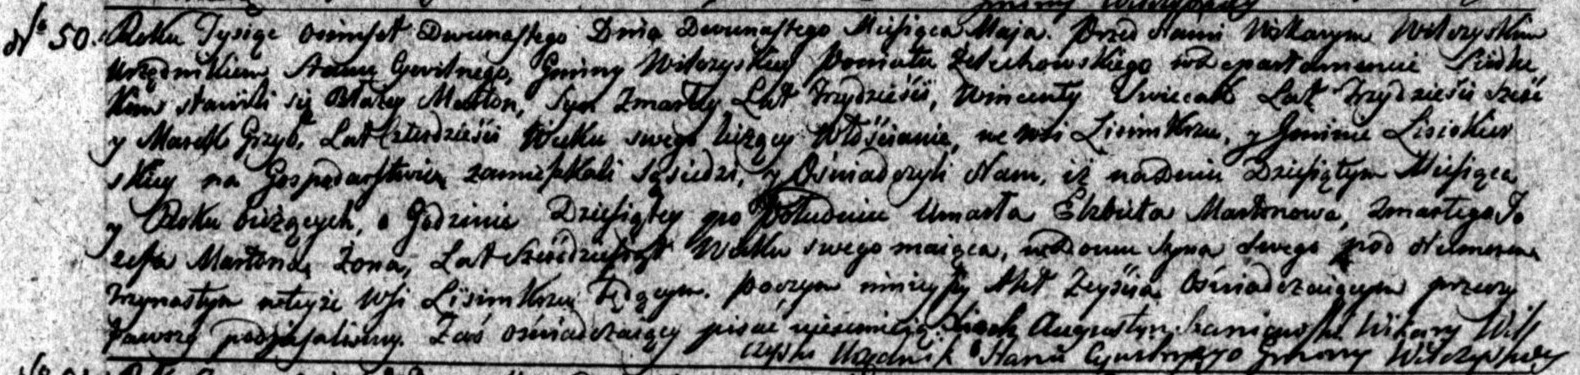 Gminy Wilczyskiey
No 50. Roku Tysiąc osimset Dwunastego Dnia Dwunastego Miesiąca Maja. Przed Nami Wikarym Wilczyskim
Urzędnikiem Stanu Cywilnego, Gminy Wilczyskiey Powiatu Żelechowskiego w Departamencie Siedle
ckim stawili się Błażey Marton, Syn Zmarłey Lat Trzydzieści, Wincenty Swieczak Lat Trzydzieści sześć
y Marek Grzyb, Lat czterdzieści Wieku swego liczący Włościanie, we wsi Lisimkrzu, y Gminie Lisiokier
skiey na Gospodarstwie zamieszkali sąsiedzi, y Oświadczyli Nam, iż na Dniu Dziesiątym Miesiąca
y Roku bieżących, o Godzinie Dziesiątey po Południu Umarła Elżbieta Martonowa, zmarłego Jó
zefa Martona, Żona, Lat Sześćdziesiąt Wieku swego maiąca, w Domu Syna Swego pod Numerem
Trzynastym w teyże Wsi Lisimkrzu będącym. Poczym ninieyszy Akt Zeyścia Oświadczaiącym przeczy
tawszy podpisaliśmy. Zaś oświadczaiący pisać nieumieją. Xiądz Augustyn Wikary Wil
czyski Urzędnik Stanu Cywilnego Gminy Wilczyskiey